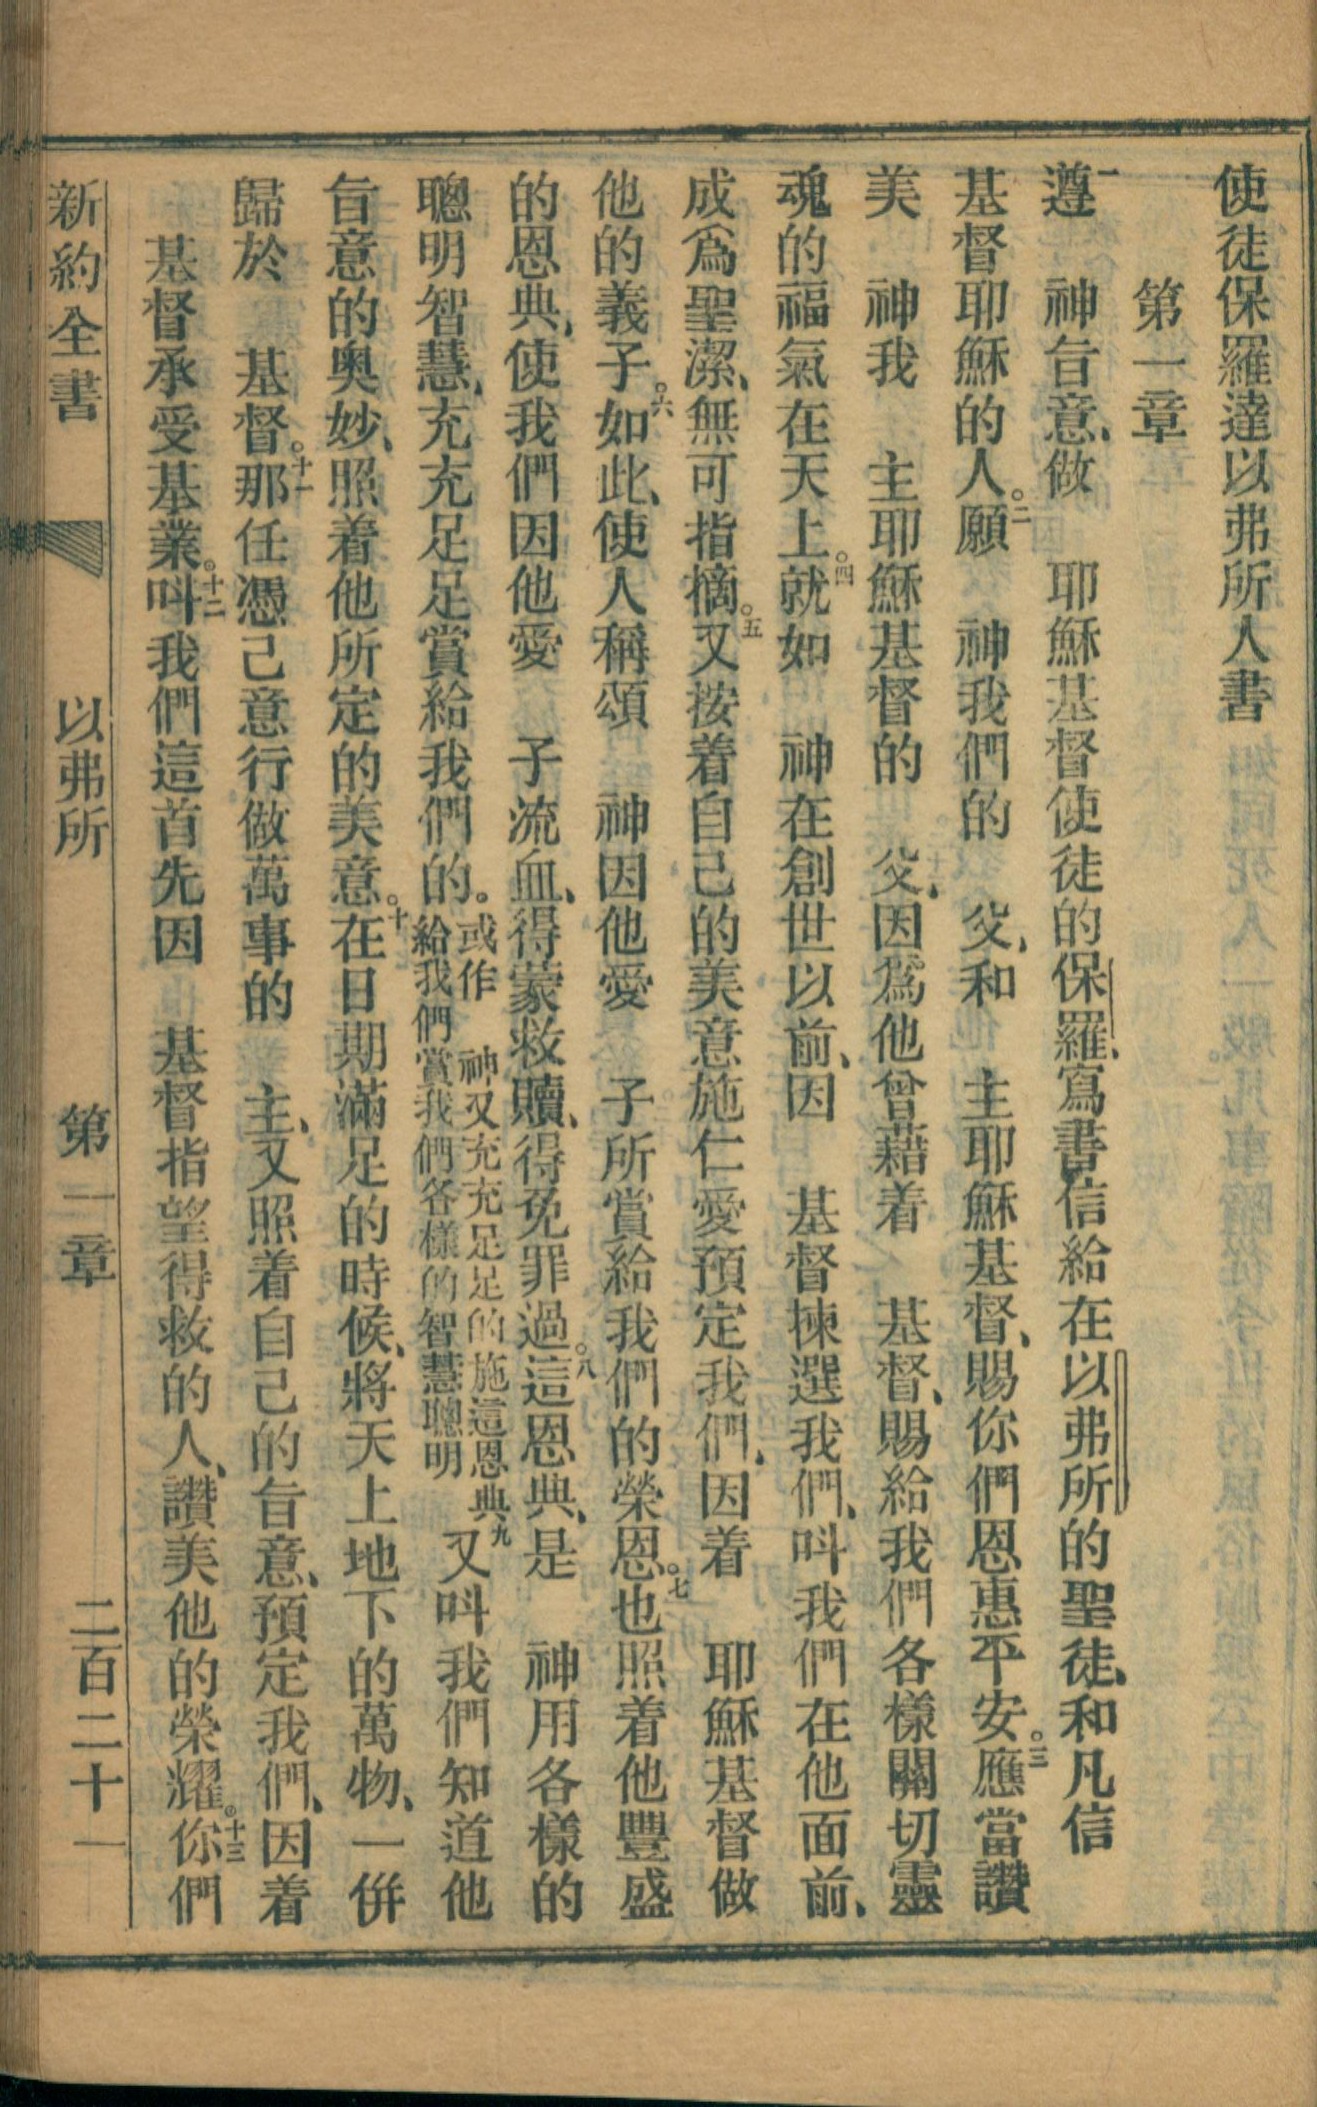 使徒保羅達以弗所人書
第一章
一遵　神旨意、做　耶穌基督使徒的保羅、寫書信給在以弗所的聖徒、和凡信
基督耶穌的人。二願　神我們的　父、和　主耶穌基督、賜你們恩惠平安。三應當讚
美　神我　主耶穌基督的　父、因爲他曾藉着　基督、賜給我們各樣關切靈
魂的福氣在天上。四就如　神在創世以前、因　基督揀選我們、呌我們在他面前、
成爲聖潔、無可指摘。五又按着自己的美意施仁愛預定我們、因着　耶穌基督做
他的義子。六如此、使人稱頌　神因他愛　子所賞給我們的榮恩。七也照着他豐盛
的恩典、使我們因他愛　子流血、得蒙救贖、得免罪過。八這恩典、是　神用各樣的
聰明智慧、充充足足賞給我們的。或作　神又充充足足的施這恩典給我們賞我們各樣的智慧聰明九又呌我們知道他
旨意的奧妙、照着他所定的美意。十在日期滿足的時候、將天上地下的萬物、一倂
歸於　基督。十一那任憑己意行做萬事的　主、又照着自己的旨意、預定我們、因着
基督承受基業。十二呌我們這首先因　基督指望得救的人、讚美他的榮耀。十三你們
新約全書　以弗所　第一章　二百二十一